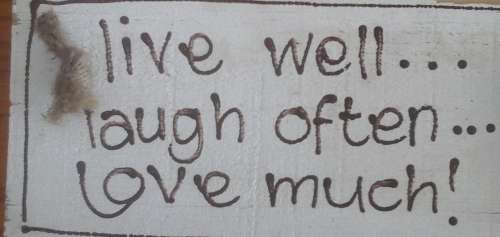 live well...
laugh often...
Love much!